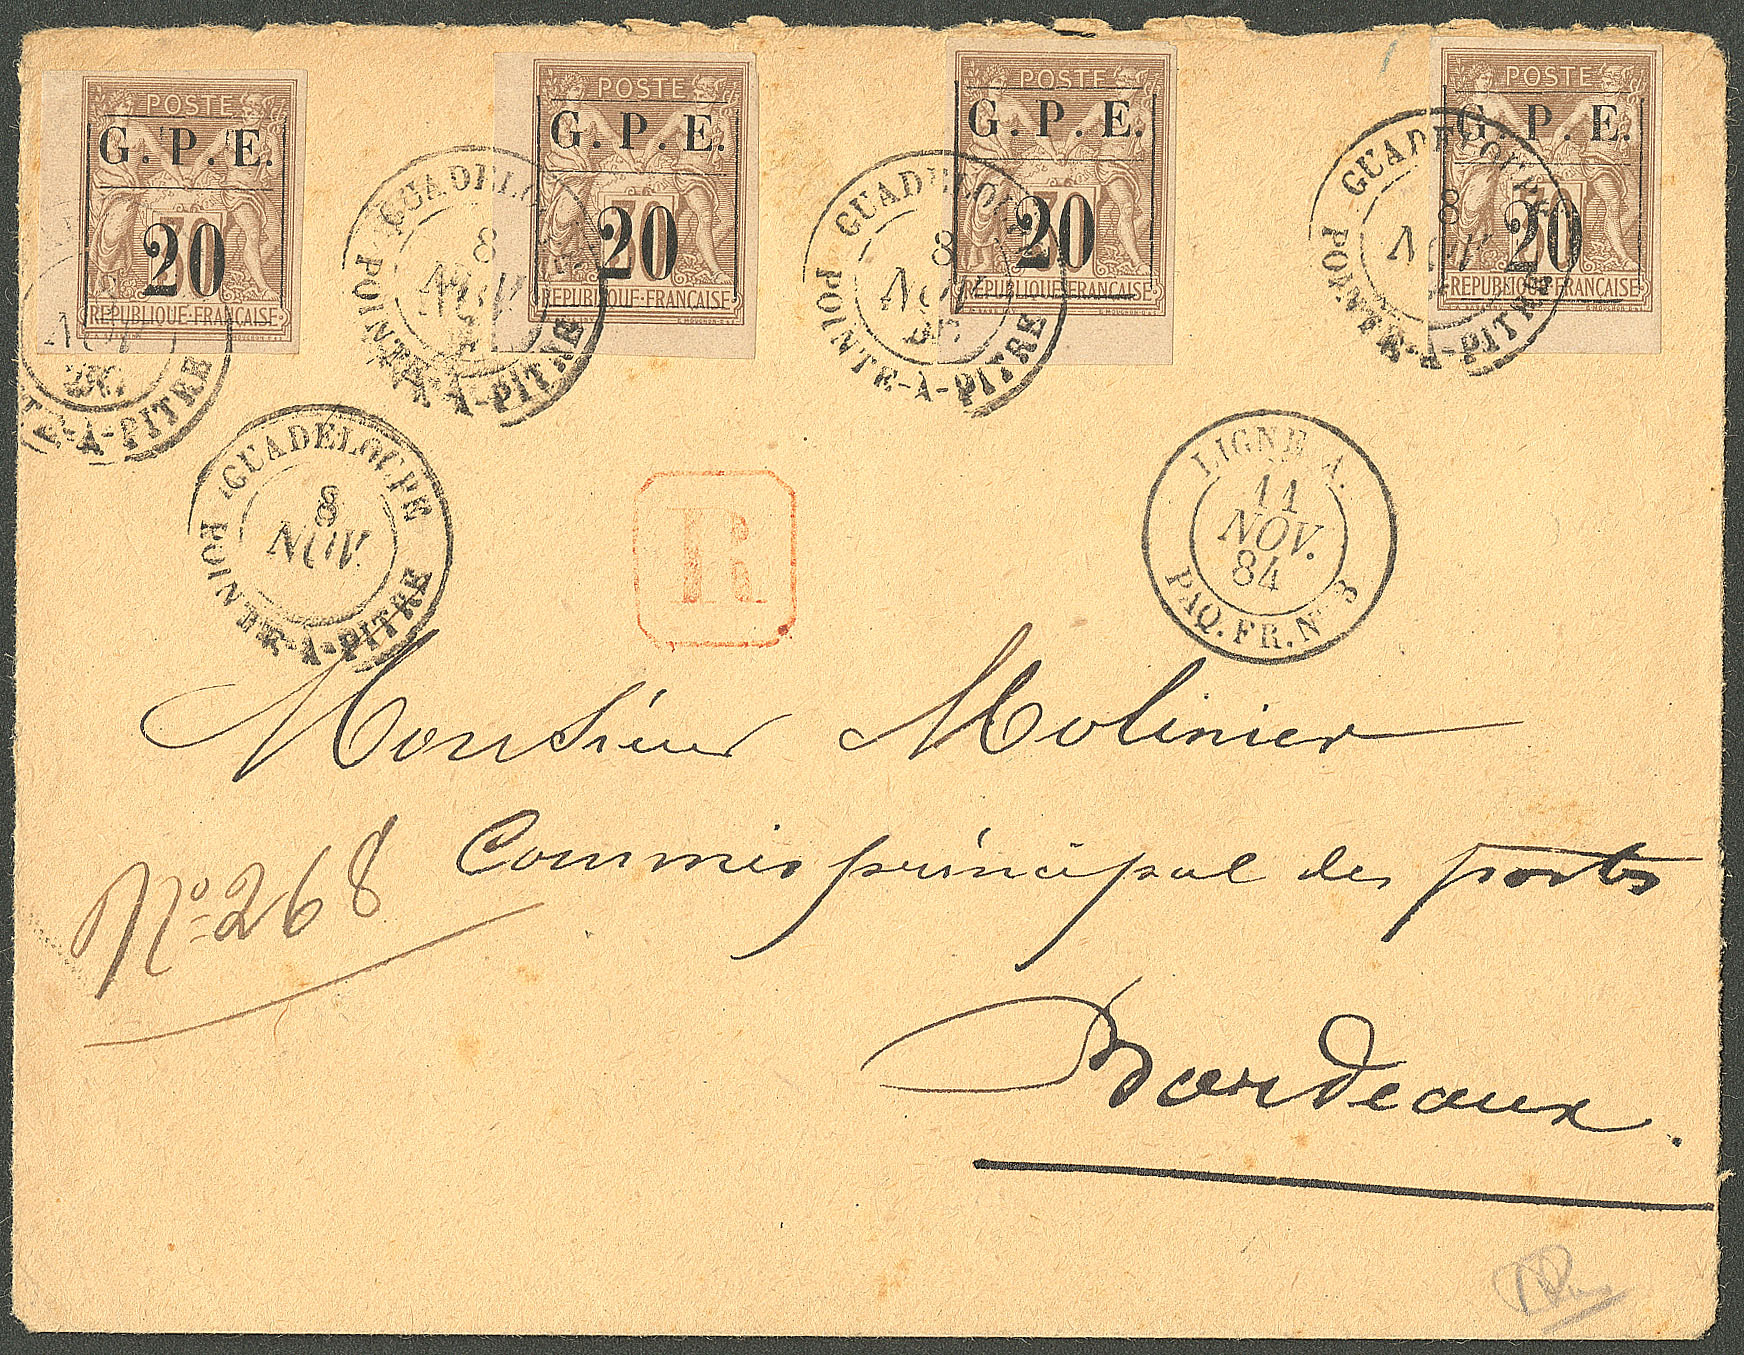 POSTE POSTE POSTE POSTE
G.P.E. G.P.E. G.P.E. G.P.E.
20 20 20 20
REPUBLIQUE·FRANÇAISE REPUBLIQUE·FRANÇAISE REPUBLIQUE·FRANÇAISE REPUBLIQUE·FRANÇAISE
GUADELOUPE 8 NOV. POINTE-A-PITRE
GUADELOUPE 8 NOV. POINTE-A-PITRE
GUADELOUPE 8 NOV. POINTE-A-PITRE
NOV. POINTE-A-PITRE
GUADELOUPE
8
NOV.
POINTE-A-PITRE
R
LIGNE A.
11
NOV.
84
PAQ. FR. Nº 3
Monsieur Molinier
Commis principal des ports
Nº 268
Bordeaux.